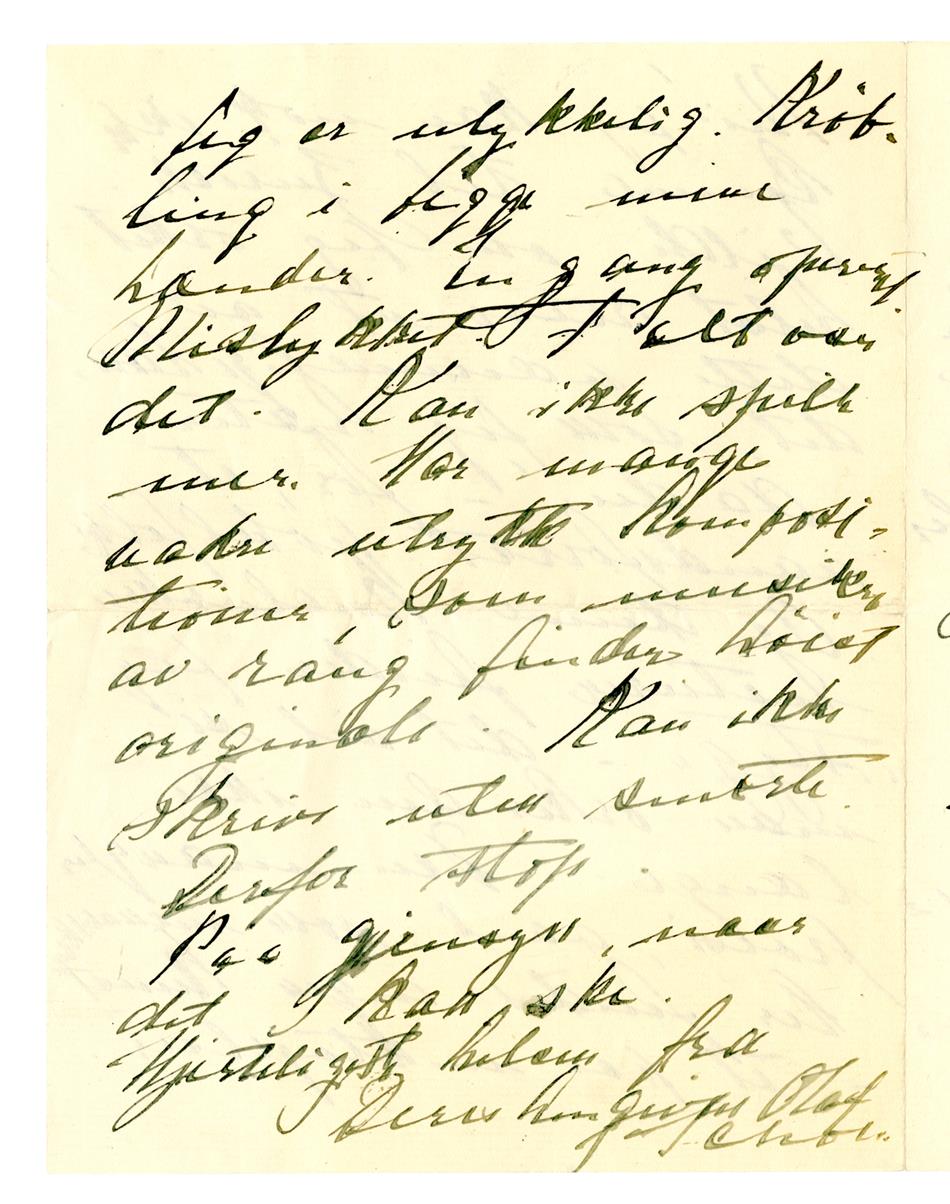 Jeg er ulykkelig. Krøb-
ling i begge mine
hænder. En gang operert
Mislykket. T alt over
det. Kan ikke spille
mer. Har mange
vakre utrykte komposi-
tioner, som musikere
av rang finder høist
originale. Kan ikke
skrive uten smerte.
Derfor stop.
Paa gjensyn, naar
det kan ske.
Hjerteligst hilsen fra
Deres hengivne Olaf